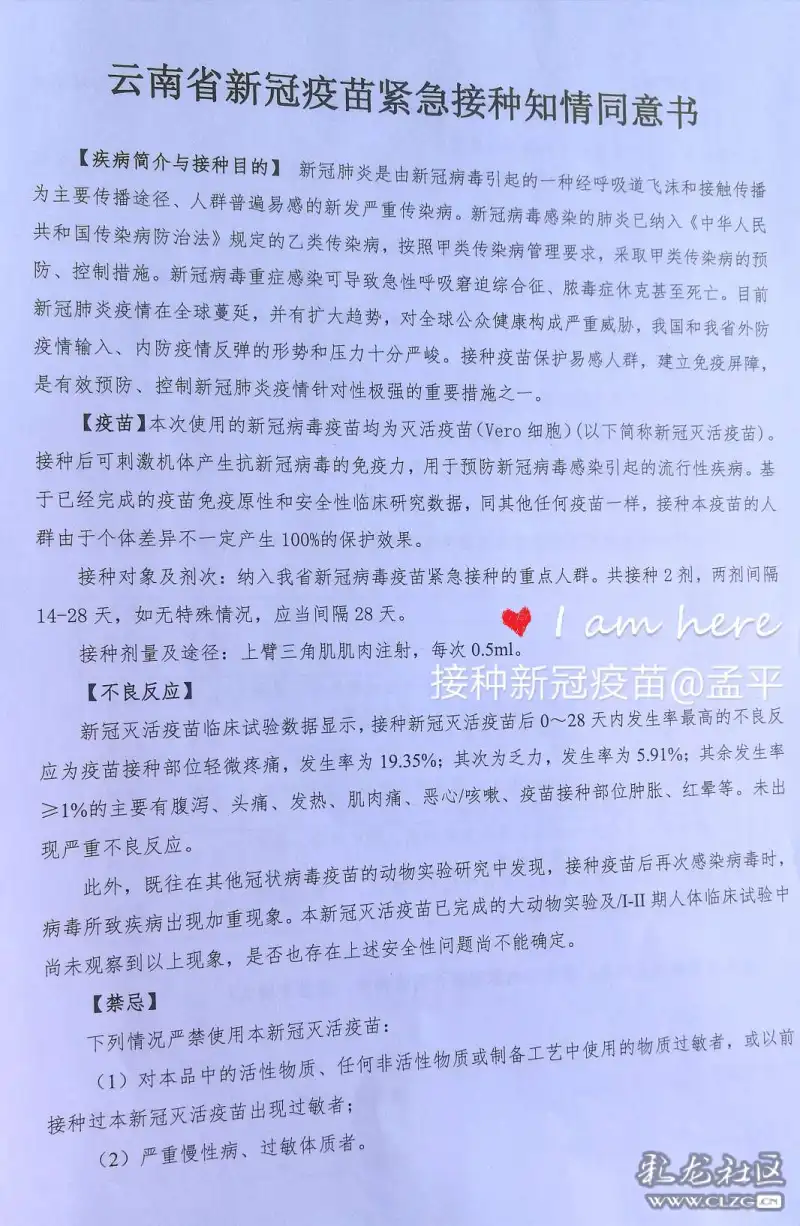 云南省新冠疫苗紧急接种知情同意书
【疾病简介与接种目的】 新冠肺炎是由新冠病毒引起的一种经呼吸道飞沫和接触传播
为主要传播途径、人群普遍易感的新发严重传染病。新冠病毒感染的肺炎已纳入《中华人民
共和国传染病防治法》规定的乙类传染病，按照甲类传染病管理要求，采取甲类传染病的预
防、控制措施。新冠病毒重症感染可导致急性呼吸窘迫综合征、脓毒症休克甚至死亡。目前
新冠肺炎疫情在全球蔓延，并有扩大趋势，对全球公众健康构成严重威胁，我国和我省外防
疫情输入、内防疫情反弹的形势和压力十分严峻。接种疫苗保护易感人群，建立免疫屏障，
是有效预防、控制新冠肺炎疫情针对性极强的重要措施之一。
【疫苗】本次使用的新冠病毒疫苗均为灭活疫苗(Vero 细胞)(以下简称新冠灭活疫苗)。
接种后可刺激机体产生抗新冠病毒的免疫力，用于预防新冠病毒感染引起的流行性疾病。基
于已经完成的疫苗免疫原性和安全性临床研究数据，同其他任何疫苗一样，接种本疫苗的人
群由于个体差异不一定产生 100%的保护效果。
接种对象及剂次：纳入我省新冠病毒疫苗紧急接种的重点人群。共接种 2 剂，两剂间隔
14-28 天，如无特殊情况，应当间隔 28 天。
I am here
接种剂量及途径：上臂三角肌肌肉注射，每次 0.5ml。
接种新冠疫苗@孟平
【不良反应】
新冠灭活疫苗临床试验数据显示，接种新冠灭活疫苗后 0～28 天内发生率最高的不良反
应为疫苗接种部位轻微疼痛，发生率为 19.35%；其次为乏力，发生率为 5.91%；其余发生率
≥1%的主要有腹泻、头痛、发热、肌肉痛、恶心/咳嗽、疫苗接种部位肿胀、红晕等。未出
现严重不良反应。
此外，既往在其他冠状病毒疫苗的动物实验研究中发现，接种疫苗后再次感染病毒时，
病毒所致疾病出现加重现象。本新冠灭活疫苗已完成的大动物实验及/I-II 期人体临床试验中
尚未观察到以上现象，是否也存在上述安全性问题尚不能确定。
【禁忌】
下列情况严禁使用本新冠灭活疫苗：
（1）对本品中的活性物质、任何非活性物质或制备工艺中使用的物质过敏者，或以前
接种过本新冠灭活疫苗出现过敏者；
（2）严重慢性病、过敏体质者。
彩龙社区
WWW.CLZG.CN